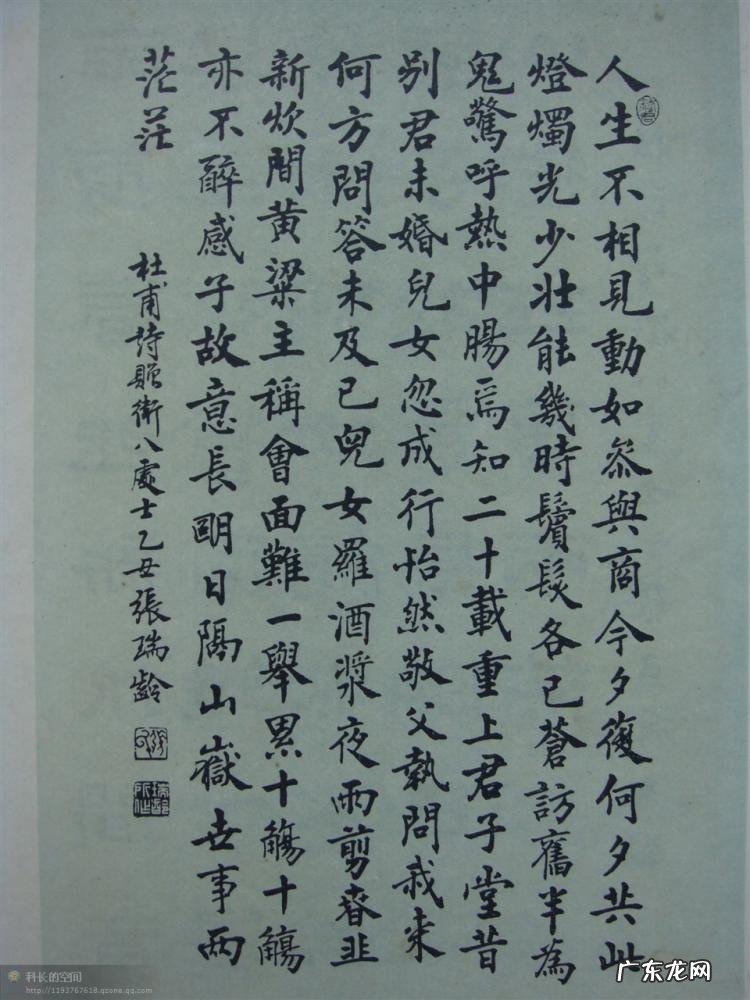 人生不相見動如參與商今夕復何夕共此
燈燭光少壯能幾時鬢髮各已蒼訪舊半為
鬼驚呼熱中腸焉知二十載重上君子堂昔
別君未婚兒女忽成行怡然敬父執問我來
何方問答未及已兒女羅酒漿夜雨剪春韭
新炊間黃粱主稱會面難一舉累十觴十觴
亦不醉感子故意長明日隔山嶽世事兩
茫茫
杜甫詩贈衛八處士乙丑張瑞齡
瑞齡所作
科长的空间
http://1193767618.qzone.qq.com
广东龙网